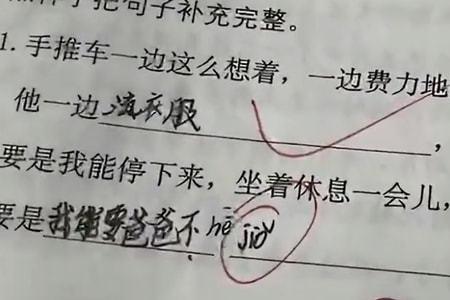 子把句子补充完整。
1. 手推车一边这么想着，一边费力地
他一边 衣服，
要是我能停下来，坐着休息一会儿，
要是我能要爸爸不 hē jiǔ